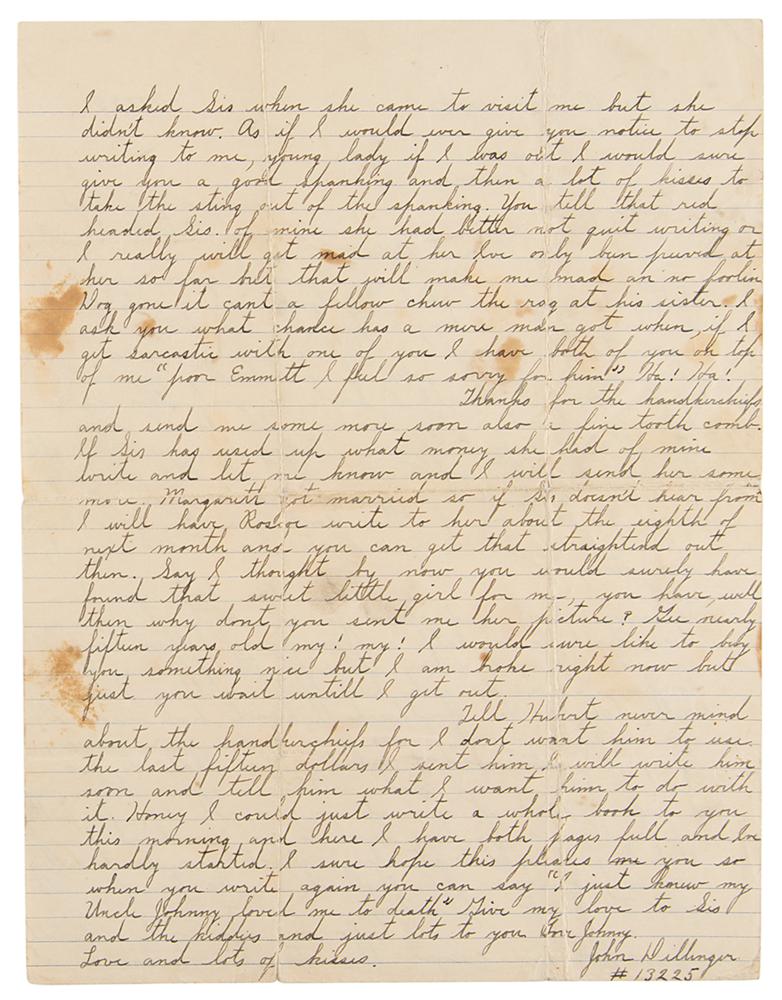 I asked Sis when she came to visit me but she
didn't know. As if I would ever give you notice to stop
writing to me, young lady if I was out I would sure
give you a good spanking and then a lot of kisses to
take the sting out of the spanking. You tell that red
headed Sis. of mine she had better not quit writing or
I really will get mad at her Ive only been peeved at
her so far but that will make me mad an no foolin
Dog gone it cant a fellow chew the rag at his sister. I
ask you what chance has a mere man got when, if I
get sarcastic with one of you I have both of you on top
of me "poor Emmett I feel so sorry for him" Ha! Ha!
Thanks for the handkerchiefs
and send me some more soon also a fine tooth comb.
If Sis has used up what money she had of mine
write and let me know and I will send her some
more. Margarett got married so if Sis doesn't hear from
I will have Roscoe write to her about the eighth of
next month and you can get that straightend out
then. Say I thought by now you would surely have
found that sweet little girl for me, you have, well
then why dont you sent me her picture? Gee nearly
fifteen years old my! my! I would sure like to buy
you something nice but I am broke right now but
just you wait untill I get out.
Tell Hubert never mind
about the handkerchiefs for I dont want him to use
the last fifteen dollars I sent him I will write him
soon and tell him what I want him to do with
it. Honey I could just write a whole book to you
this morning and here I have both pages full and Ive
hardly started. I sure hope this pleases me you so
when you write again you can say "I just knew my
Uncle Johnny loved me to death" Give my love to Sis
and the kiddies and just lots to you from Johnny.
Love and lots of kisses.
John Dillinger
# 13225